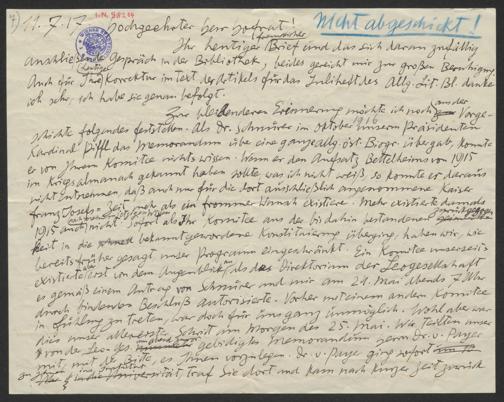 11. 7. 17 I.N. 98204 Nicht abgeschickt!
Hochgeehrter Herr Hofrat!
Ihr heutiger freundlicher Brief und das sich daran zufällig
anschließende Gespräch in der Bibliothek, beides gereicht mir zur großen Beruhigung.
Auch für Ihre Korrektur im Text des Artikels für das Juliheft des Allg. Lit. Bl. danke
ich sehr, ich habe sie genau befolgt.
Zur bleibenderen Erinnerung möchte ich noch an der Vorge-
schichte folgendes feststellen. Als Dr. Schnürer im Oktober 1916 unserm Präsidenten
Kardinal Piffl das Memorandum über eine ganze allg. öst. Biogr. übergab, konnte
er von Ihrem Komitee nichts wissen. Wenn er den Aufsatz Bettelheims von 1915
im Kriegsalmanach gekannt haben sollte, was ich nicht weiß, so konnte er daraus
nicht entnehmen, daß auch nur für die dort ausschließlich angenommene Kaiser
Franz Josefs-Zeit mehr als ein frommer Wunsch existiere. Mehr existierte damals
1915 auch nicht. Sofort als Ihr Komitee aus der bis dahin bestandenen
keit in die bekanntgewordene Konstituierung überging, haben wir, wie
bereits früher gesagt unser Programm eingeschränkt. Ein Komitee unserseits
existierte erst von dem Augenblick an, als das Direktorium der Leogesellschaft
es gemäß einem Antrag von Schnürer und mir am 24. Mai abends 7 Uhr
durch bindenden Beschluß autorisierte. Vorher mit einem andern Komitee
in Fühlung zu treten, war doch für uns ganz unmöglich. Wohl aber war
dies unser allererster Schritt am Morgen des 25. Mai. Wir teilten unser
von der Leo-Ges. gebilligtes Memorandum Herrn Dr. v. Payer
mit, mit der Bitte, es Ihnen vorzulegen. Dr. v. Payer ging sofort
in die Universität, traf Sie dort und kam nach kurzer Zeit zurück